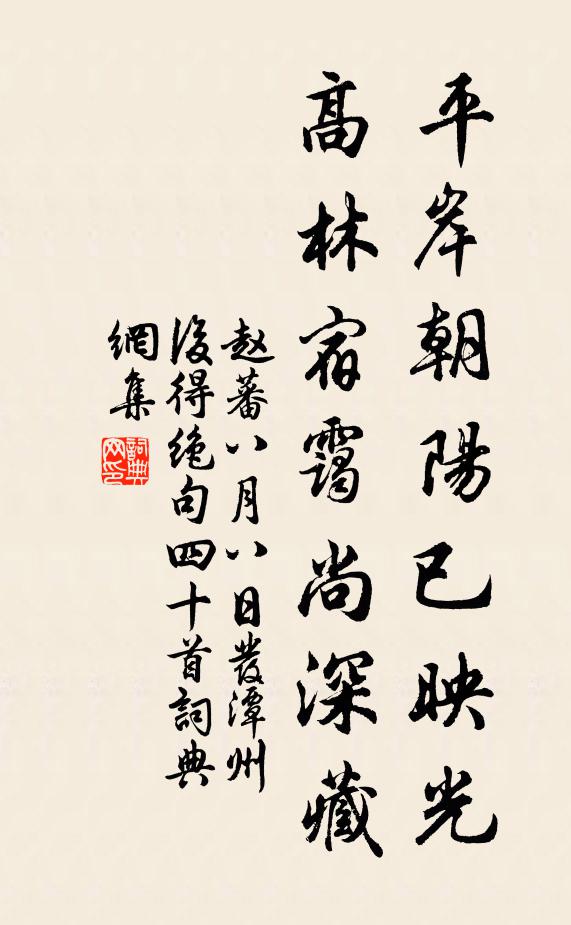 平岸朝陽已映光
高林宿靄尚深藏
赵蕃八月八日發潭州
後得绝句四十首詞典
網集
詞典網印